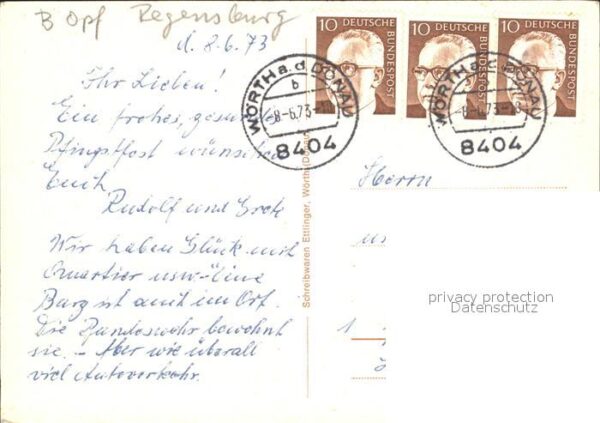 B Opf Regensburg
d. 8.6.73
Ihr Lieben!
Ein frohes, gesundes
Pfingstfest wünschen
Euch
Rudolf und Grete
Wir haben Glück mit
Quartier usw - Eine
Burg ist auch im Ort.
Die Bundeswehr bewohnt
sie. - Aber wie überall
viel Autoverkehr.
Schreibwaren Ettlinger, Wörth/Donau
10 DEUTSCHE BUNDESPOST
10 DEUTSCHE BUNDESPOST
10 DEUTSCHE BUNDESPOST
WÖRTH a.d. DONAU
b
-8-6.73-
8404
WÖRTH a.d. DONAU
-8-6.73-
8404
Herrn
privacy protection
Datenschutz
1